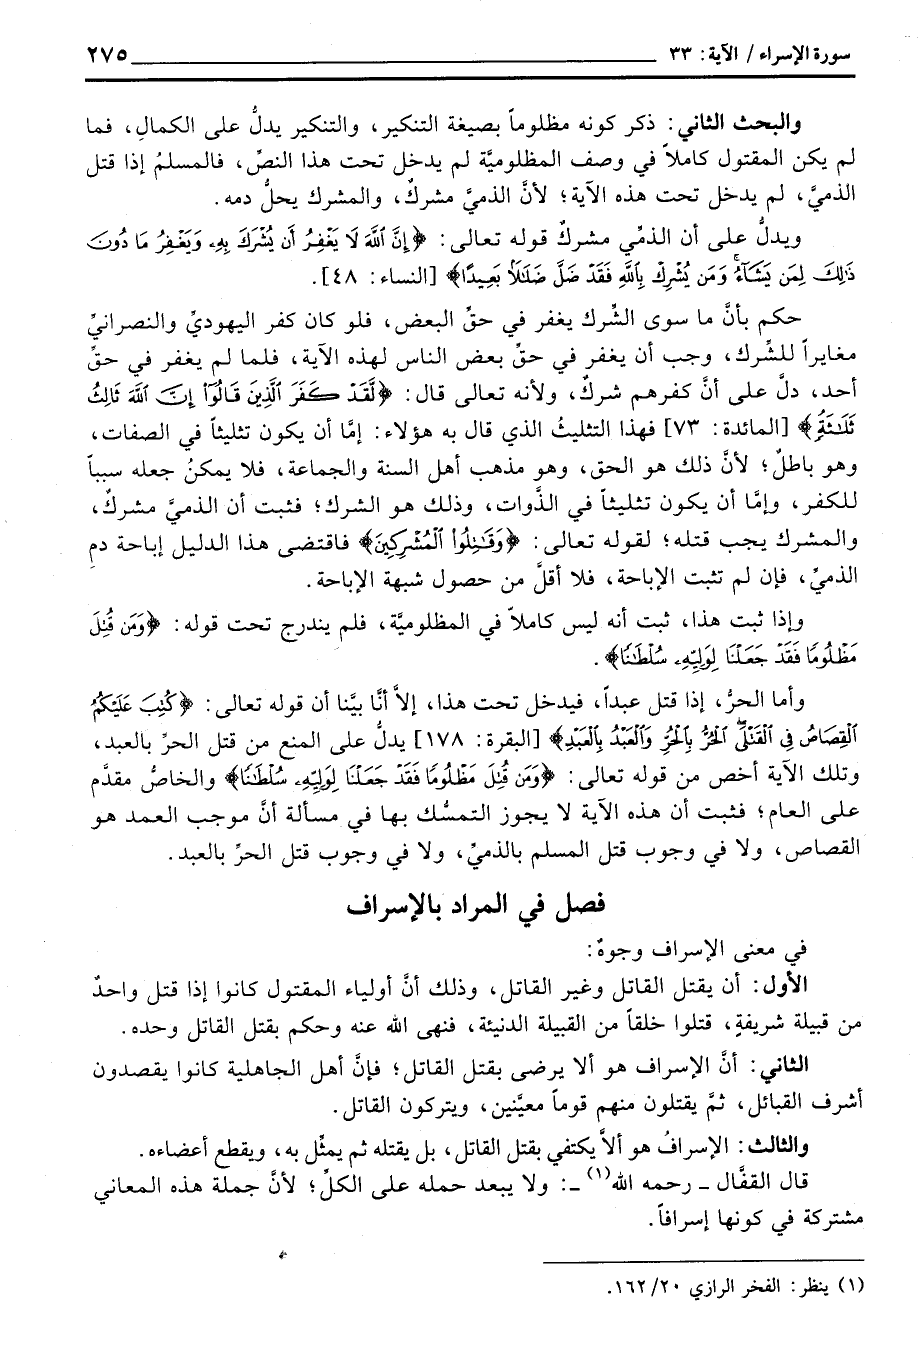 سورة الإسراء / الآية: ٣٣ ٢٧٥
والبحث الثاني: ذكر كونه مظلوماً بصيغة التنكير، والتنكير يدلُّ على الكمالِ، فما
لم يكن المقتول كاملاً في وصف المظلوميَّة لم يدخل تحت هذا النصِّ، فالمسلمُ إذا قتل
الذميَّ، لم يدخل تحت هذه الآية؛ لأنَّ الذميَّ مشركٌ، والمشرك يحلُّ دمه.
ويدلُّ على أن الذمِّي مشركٌ قوله تعالى: ﴿إِنَّ اللَّهَ لَا يَغْفِرُ أَن يُشْرَكَ بِهِۦ وَيَغْفِرُ مَا دُونَ
ذَٰلِكَ لِمَن يَشَآءُ وَمَن يُشْرِكْ بِاللَّهِ فَقَدْ ضَلَّ ضَلَٰلًا بَعِيدًا﴾ [النساء: ٤٨].
حكم بأنَّ ما سوى الشِّرك يغفر في حقِّ البعض، فلو كان كفر اليهوديِّ والنصرانيِّ
مغايراً للشِّرك، وجب أن يغفر في حقِّ بعض الناس لهذه الآية، فلما لم يغفر في حقِّ
أحد، دلَّ على أنَّ كفرهم شركٌ، ولأنه تعالى قال: ﴿لَّقَدْ كَفَرَ الَّذِينَ قَالُوٓا إِنَّ اللَّهَ ثَالِثُ
ثَلَٰثَةٍ﴾ [المائدة: ٧٣] فهذا التثليثُ الذي قال به هؤلاء: إمَّا أن يكون تثليثاً في الصفات،
وهو باطلٌ؛ لأنَّ ذلك هو الحق، وهو مذهب أهل السنة والجماعة، فلا يمكنُ جعله سبباً
للكفر، وإمَّا أن يكون تثليثاً في الذَّوات، وذلك هو الشرك؛ فثبت أن الذميَّ مشركٌ،
والمشرك يجب قتله؛ لقوله تعالى: ﴿وَقَٰتِلُوا الْمُشْرِكِينَ﴾ فاقتضى هذا الدليل إباحة دم
الذميِّ، فإن لم تثبت الإباحة، فلا أقلَّ من حصول شبهة الإباحة.
وإذا ثبت هذا، ثبت أنه ليس كاملاً في المظلوميَّة، فلم يندرج تحت قوله: ﴿وَمَن قُتِلَ
مَظْلُومًا فَقَدْ جَعَلْنَا لِوَلِيِّهِۦ سُلْطَٰنًا﴾.
وأما الحرُّ، إذا قتل عبداً، فيدخل تحت هذا، إلاَّ أنَّا بيَّنا أن قوله تعالى: ﴿كُتِبَ عَلَيْكُمُ
الْقِصَاصُ فِي الْقَتْلَى الْحُرُّ بِالْحُرِّ وَالْعَبْدُ بِالْعَبْدِ﴾ [البقرة: ١٧٨] يدلُّ على المنع من قتل الحرِّ بالعبد،
وتلك الآية أخص من قوله تعالى: ﴿وَمَن قُتِلَ مَظْلُومًا فَقَدْ جَعَلْنَا لِوَلِيِّهِۦ سُلْطَٰنًا﴾ والخاصُّ مقدَّم
على العام؛ فثبت أن هذه الآية لا يجوز التمسُّك بها في مسألة أنَّ موجب العمد هو
القصاص، ولا في وجوب قتل المسلم بالذميِّ، ولا في وجوب قتل الحرِّ بالعبد.
فصل في المراد بالإسراف
في معنى الإسراف وجوهٌ:
الأول: أن يقتل القاتل وغير القاتل، وذلك أنَّ أولياء المقتول كانوا إذا قتل واحدٌ
من قبيلة شريفةٍ، قتلوا خلقاً من القبيلة الدنيئة، فنهى الله عنه وحكم بقتل القاتل وحده.
الثاني: أنَّ الإسراف هو ألا يرضى بقتل القاتل؛ فإنَّ أهل الجاهلية كانوا يقصدون
أشرف القبائل، ثمَّ يقتلون منهم قوماً معيَّنين، ويتركون القاتل.
والثالث: الإسرافُ هو ألاَّ يكتفي بقتل القاتل، بل يقتله ثم يمثِّل به، ويقطع أعضاءه.
قال القفَّال ـ رحمه الله(١) ـ: ولا يبعد حمله على الكلِّ؛ لأنَّ جملة هذه المعاني
مشتركة في كونها إسرافاً.
(١) ينظر: الفخر الرازي ٢٠/١٦٢.